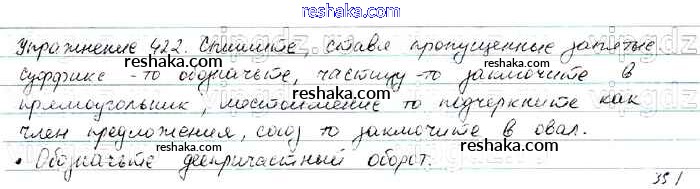 reshaka.com
reshaka.com
Упражнение 422. Спишите, ставя пропущенные запятые.
Суффикс -то обозначьте, частицу -то заключите в
прямоугольник, местоимение то подчеркните как
член предложения, союз то заключите в овал.
• Обозначьте деепричастный оборот.
351
reshaka.com